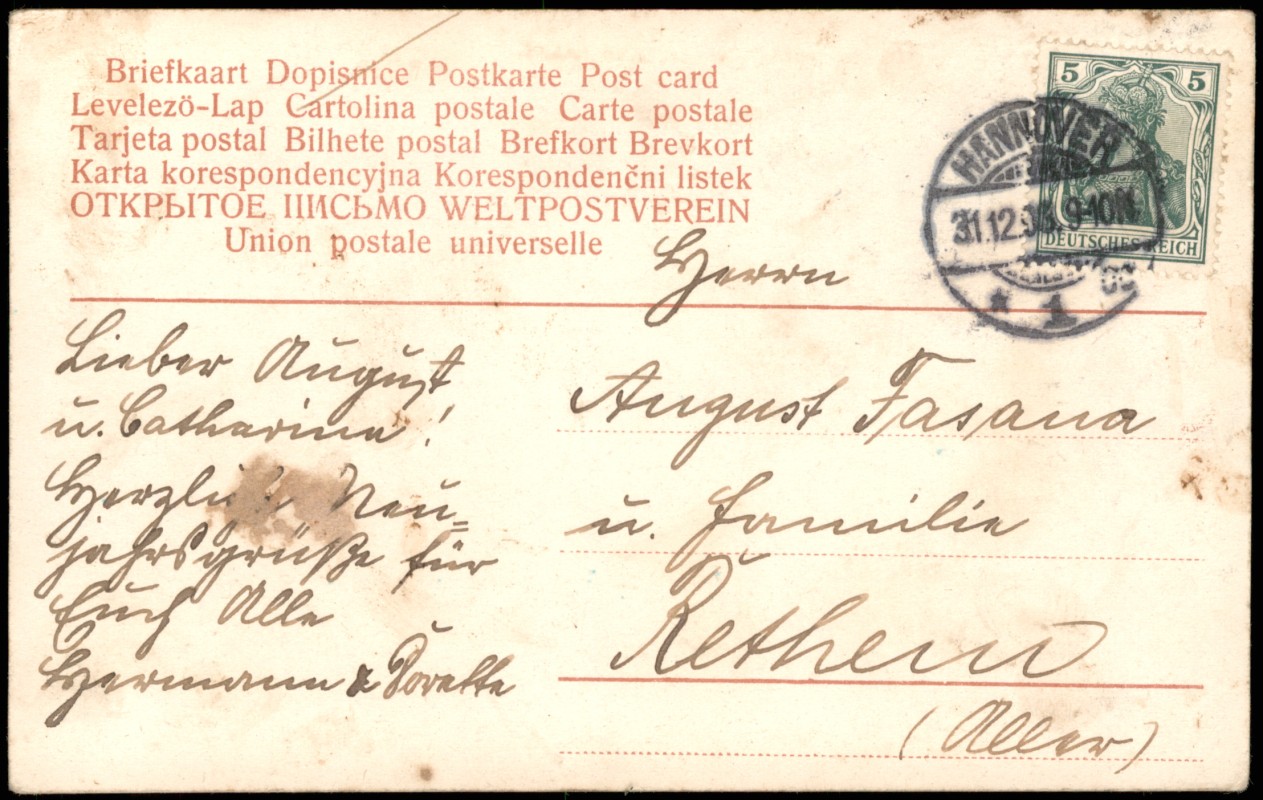 Briefkaart Dopisnice Postkarte Post card
Levelezö-Lap Cartolina postale Carte postale
Tarjeta postal Bilhete postal Brefkort Brevkort
Karta korespondencyjna Korespondenčni listek
ОТКРЫТОЕ ПИСЬМО WELTPOSTVEREIN
Union postale universelle
5 5
DEUTSCHES REICH
HANNOVER
31.12. 9-10N.
* 1
Herrn
August Fasana
u. Familie
Rethem
(Aller)
Lieber August
u. Catharina!
Neu=
jahrsgrüße für
Euch Alle
Hermann & Dorette